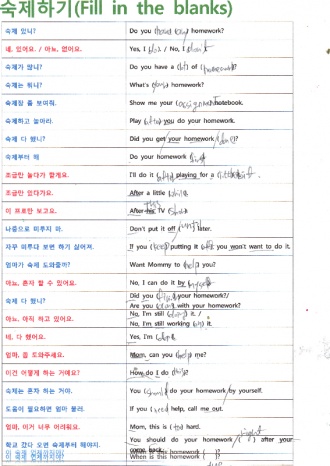 숙제하기(Fill in the blanks)
숙제 있니? Do you (have any) homework?
네, 있어요. / 아뇨, 없어요. Yes, I (do). / No, I (don't)
숙제가 많니? Do you have a (lot) of (homework)?
숙제는 뭐니? What's (your) homework?
숙제장 좀 보여줘. Show me your (assignment) notebook.
숙제하고 놀아라. Play (after) you do your homework.
숙제 다 했니? Did you get your homework (done)?
숙제부터 해 Do your homework (first)
조금만 놀다가 할게요. I'll do it (after) playing for a (little bit).
조금만 있다가요. After a little (while)
이 프로만 보고요. After this TV (show)
나중으로 미루지 마. Don't put it off (until) later.
자꾸 미루다 보면 하기 싫어져. If you (keep) putting it (off) you won't want to do it.
엄마가 숙제 도와줄까? Want Mommy to (help) you?
아뇨, 혼자 할 수 있어요. No, I can do it by (myself)
숙제 다 했니? Did you (finish) your homework?/
Are you (done) with your homework?
아뇨, 아직 하고 있어요. No, I'm still (doing) it. /
No, I'm still working (on) it.
네, 다 했어요. Yes, I'm (done)
엄마, 좀 도와주세요. Mom, can you (help) me?
이건 어떻게 하는 거예요? How do I do (this)?
숙제는 혼자 하는 거야. You (should) do your homework by yourself.
도움이 필요하면 엄마 불러. If you (need) help, call me out.
엄마, 이거 너무 어려워요. Mom, this is (too) hard.
학교 갔다 오면 숙제부터 해야지. You should do your homework (right) after your
come back.
When is this homework ( )?